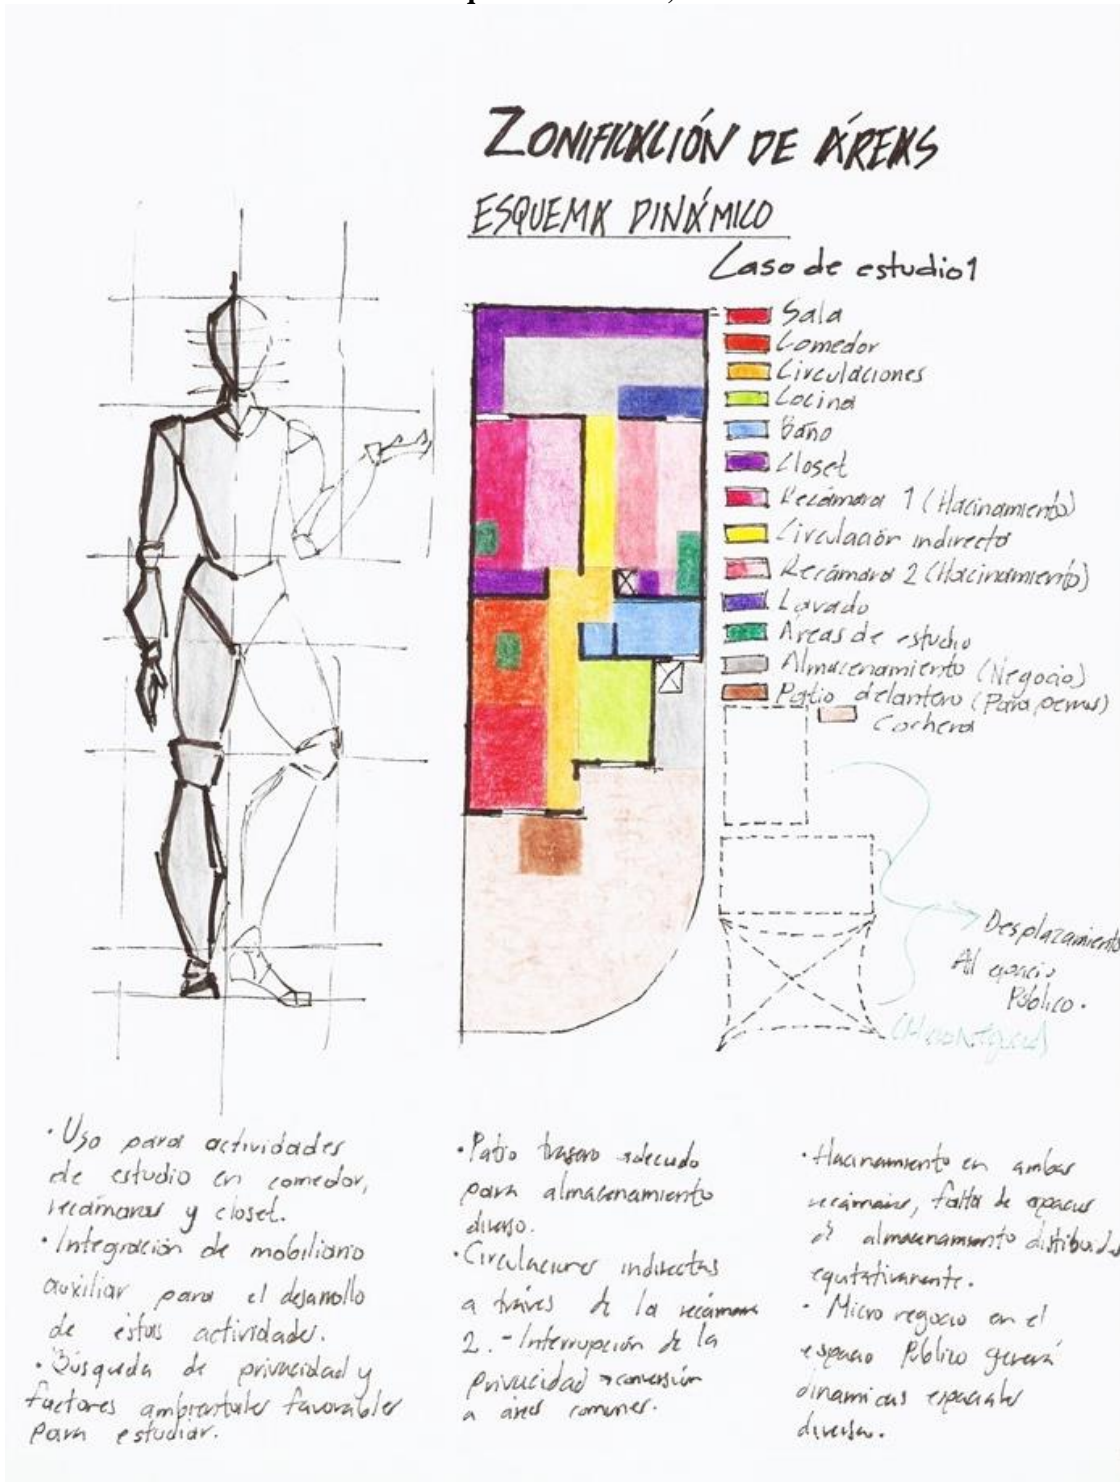 ZONIFICACIÓN DE ÁREAS
ESQUEMA DINÁMICO
Caso de estudio 1
Sala
Comedor
Circulaciones
Cocina
Baño
Closet
Recámara 1 (Hacinamiento)
Circulación indirecta
Recámara 2 (Hacinamiento)
Lavado
Áreas de estudio
Almacenamiento (Negocio)
Patio delantero (Para perros)
Cochera
Desplazamiento
Al espacio
Público.
· Uso para actividades
de estudio en comedor,
recámaras y closet.
· Integración de mobiliario
auxiliar para el desarrollo
de estas actividades.
· Búsqueda de privacidad y
factores ambientales favorables
para estudiar.
· Patio trasero adecuado
para almacenamiento
diverso.
· Circulaciones indirectas
a través de la recámara
2. - Interrupción de la
privacidad → conversión
a areas comunes.
· Hacinamiento en ambas
recámaras, falta de espacios
de almacenamiento distribuidos
equitativamente.
· Micro negocio en el
espacio Público genera
dinamicas espaciales
diversas.